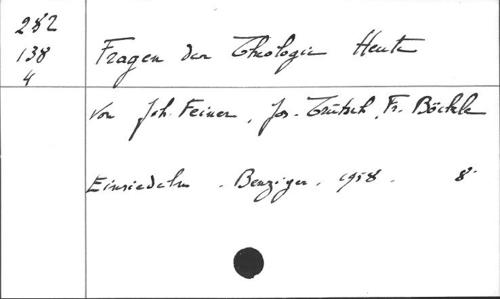 282
138
4
Fragen der Theologie Heute
Von Joh. Feiner, Jos. Trütsch, Fr. Böckle
Einsiedeln. Benziger. 1958. 8°